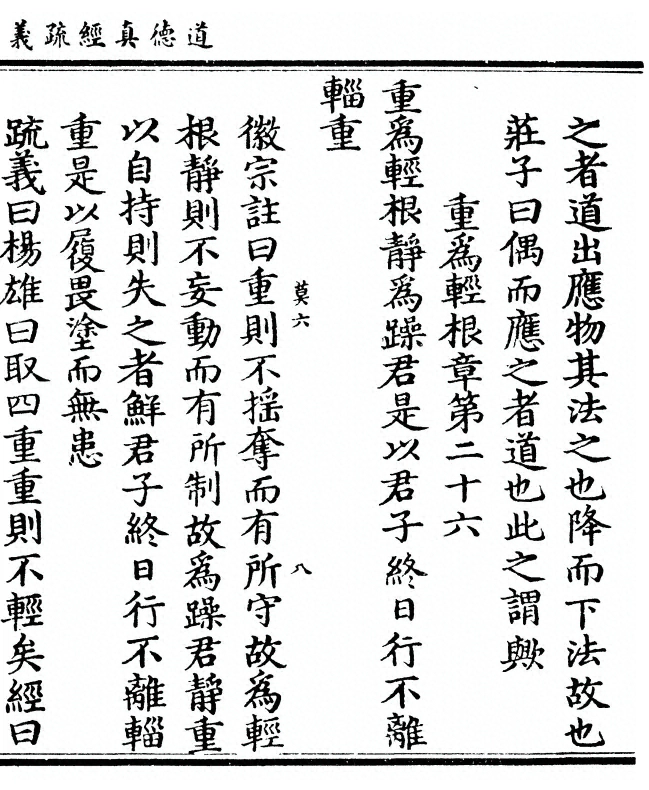 道德真經疏義
之者道出應物其法之也降而下法故也
莊子曰偶而應之者道也此之謂歟
重爲輕根章第二十六
重爲輕根靜爲躁君是以君子終日行不離
輜重
莫六
八
徽宗註曰重則不揺奪而有所守故爲輕
根靜則不妄動而有所制故爲躁君靜重
以自持則失之者鮮君子終日行不離輜
重是以履畏塗而無患
疏義曰楊雄曰取四重重則不輕矣經曰